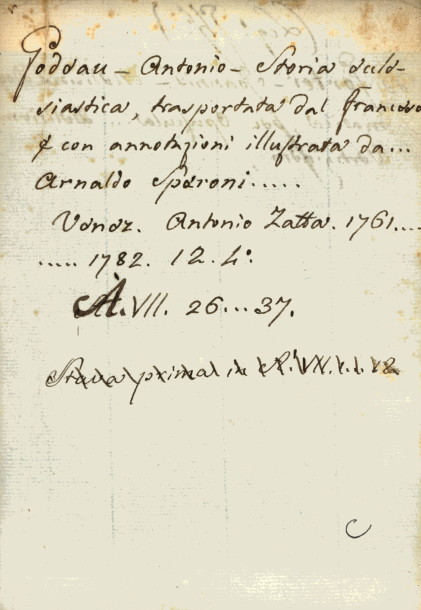 Godeau – Antonio – Storia eccle-
siastica, trasportata dal francese
e con annotazioni illustrata da...
Arnaldo Speroni.....
Venez. Antonio Zatta. 1761....
..... 1782. 12. 4°.
A. VII. 26...37.
Stava prima in A. VII. 1..12
C